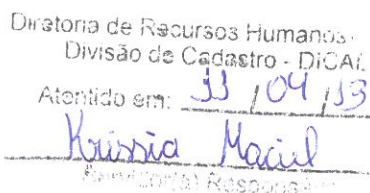 Diretoria de Recursos Humanos -
Divisão de Cadastro - DICAL
Atentido em: 11 / 04 / 13
Krissia Maciel
Servidor(a) Responsável